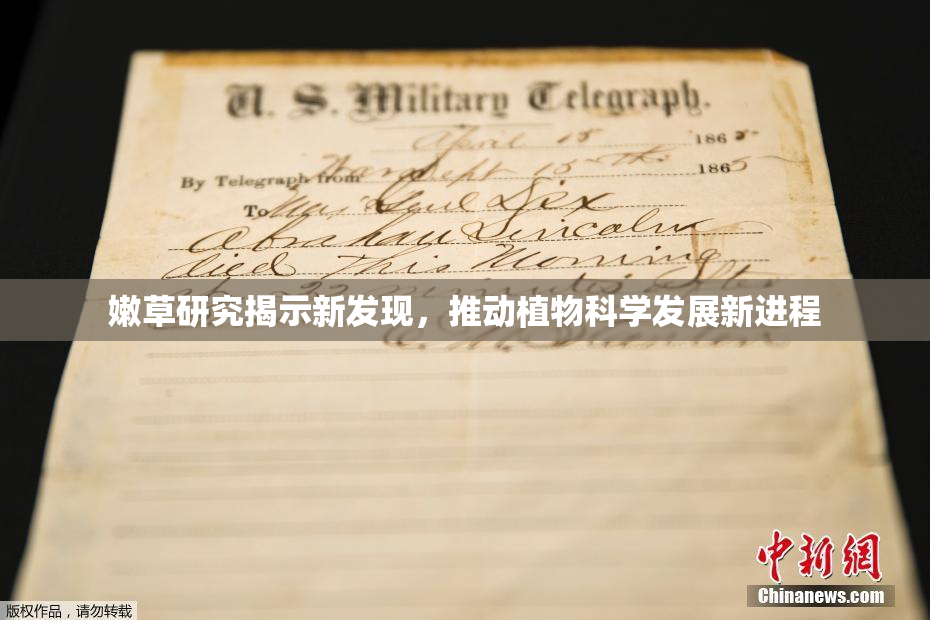 U. S. Military Telegraph.
April 15 1865
By Telegraph from War Dept 15th 1865
To Maj Genl Dix
Abraham Lincoln
died This Morning
at 22 minutes after
嫩草研究揭示新发现，推动植物科学发展新进程
E. M. Stanton
中新网
Chinanews.com
版权作品，请勿转载